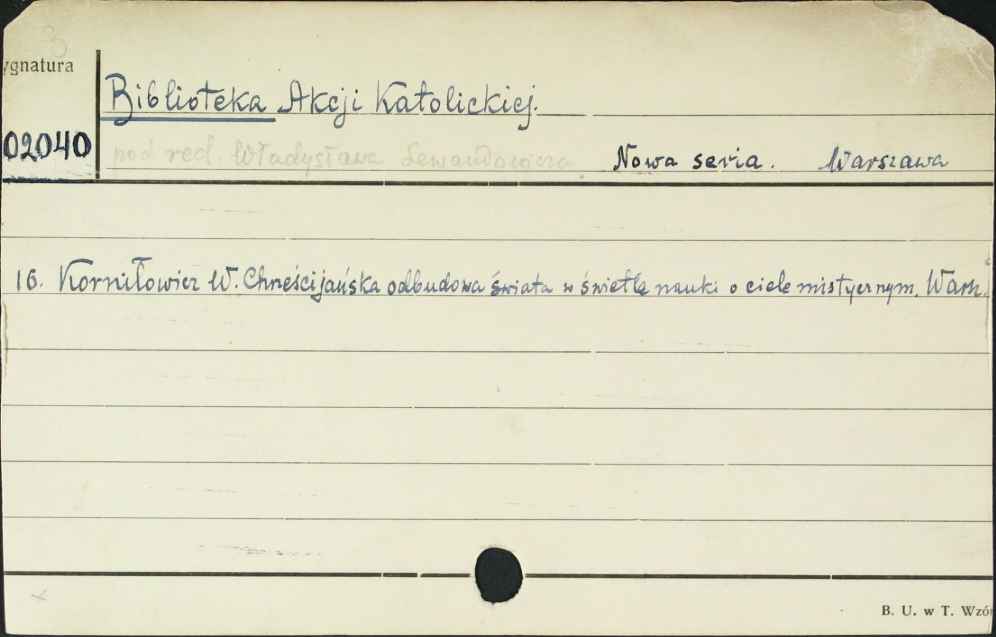 3
ygnatura
Biblioteka Akcji Katolickiej.
02040
pod red. Władysława Lewandowicza Nowa seria. Warszawa
16. Korniłowicz W. Chrześcijańska odbudowa świata w świetle nauki o ciele mistycznym. Warsz.
B. U. w T. Wzó